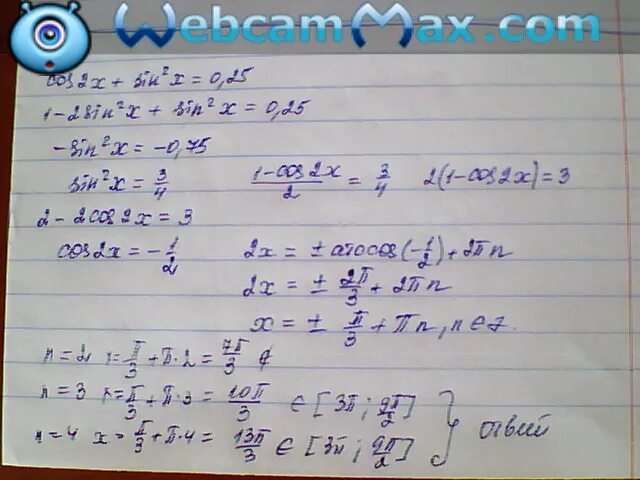 WebcamMax.com
cos2x + sin²x = 0,25
1-2sin²x + sin²x = 0,25
-sin²x = -0,75
sin²x = 3/4   (1-cos2x)/2 = 3/4   2(1-cos2x) = 3
2 - 2cos2x = 3
cos2x = -1/2   2x = ± arccos(-1/2) + 2πn
2x = ± 2π/3 + 2πn
x = ± π/3 + πn, n∈Z.
n=2 x=π/3+π·2 = 7π/3 ∉
n=3 x=π/3+π·3 = 10π/3 ∈ [3π; 9π/2]
n=4 x=π/3+π·4 = 13π/3 ∈ [3π; 9π/2] } ответ